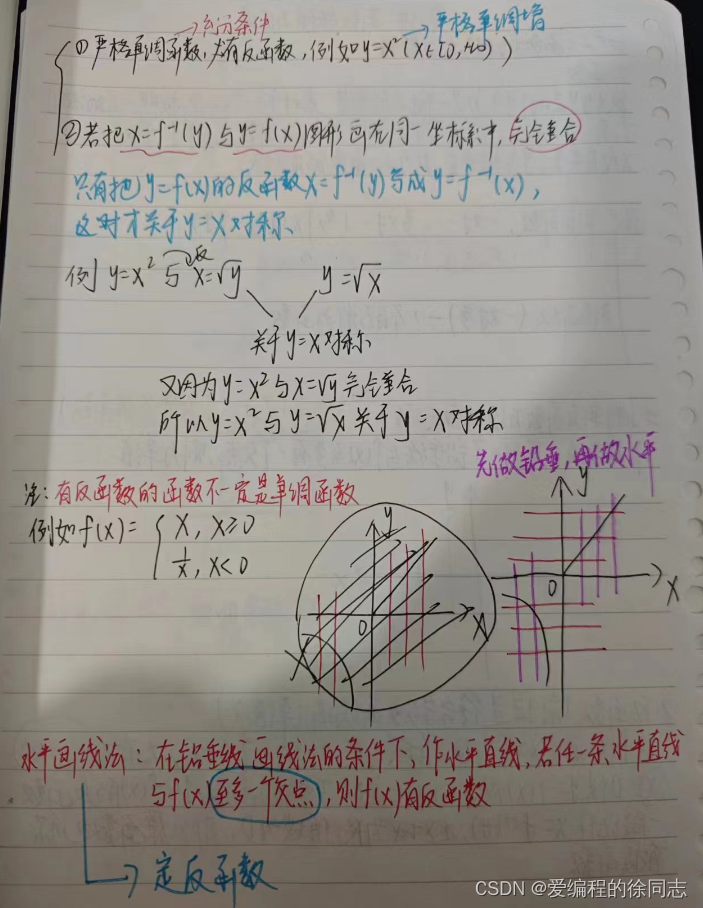 充分条件 严格单调增
① 严格单调函数,必有反函数,例如y=x²(x∈[0,+∞))
②若把x=f⁻¹(y)与y=f(x)图形画在同一坐标系中,完全重合
只有把y=f(x)的反函数x=f⁻¹(y)写成y=f⁻¹(x),
这时才关于y=x对称.
反
例 y=x² 与 x=√y y=√x
关于y=x对称
又因为y=x²与x=√y完全重合
所以y=x²与y=√x关于y=x对称
先做铅垂,再做水平
注:有反函数的函数不一定是单调函数
例如f(x)= { x, x≥0
1/x, x<0
y
x
0
y
x
0
水平画线法:在铅垂线画线法的条件下,作水平直线,若任一条水平直线
与f(x)至多一个交点,则f(x)有反函数
定反函数
CSDN @爱编程的徐同志